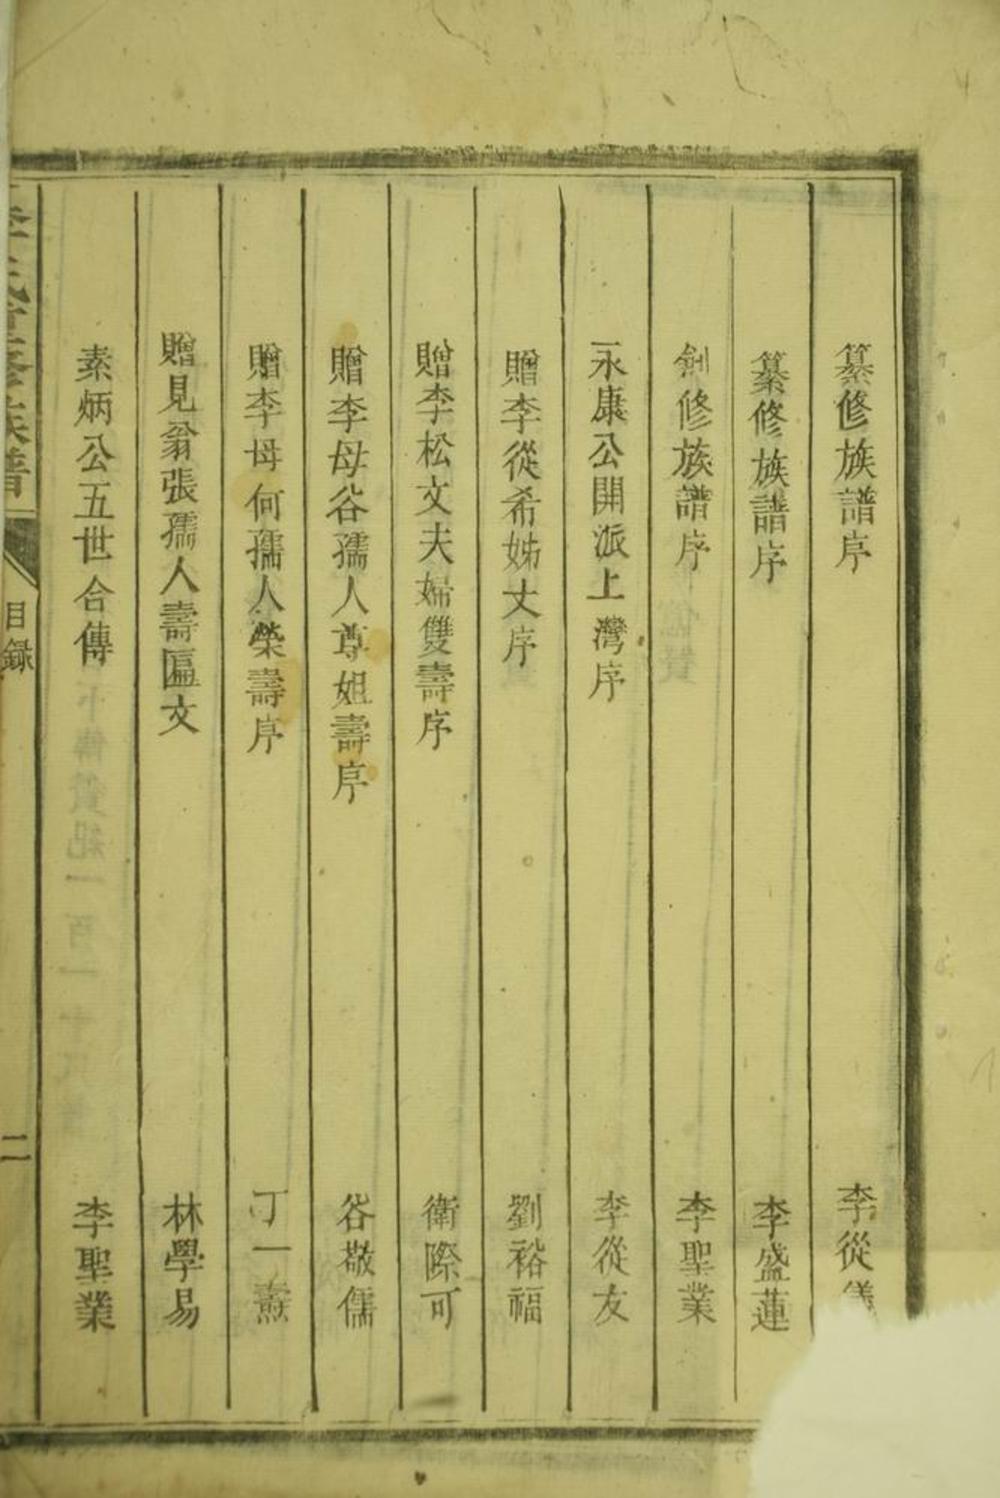 纂修族譜序 李從儀
纂修族譜序 李盛蓮
創修族譜序 李聖業
永康公開派上灣序 李從友
贈李從希姊丈序 劉裕福
贈李松文夫婦雙壽序 衛際可
贈李母谷孺人尊姐壽序 谷敬儒
贈李母何孺人榮壽序 丁一燾
贈見翁張孺人壽匾文 林學易
素炳公五世合傳 李聖業
族譜
目録
二